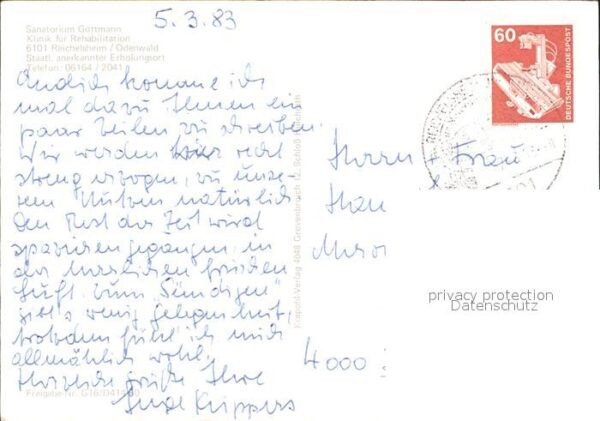 5.3.83
Sanatorium Gottmann
Klinik für Rehabilitation
6101 Reichelsheim / Odenwald
Staatl. anerkannter Erholungsort
Telefon: 06164 / 2041
Endlich komme ich
mal dazu Ihnen ein
paar Zeilen zu schreiben.
Wir werden hier recht
streng erzogen, zu unse-
rem Nutzen natürlich.
Den Rest der Zeit wird
spazieren gegangen in
der herrlichen frischen
Luft. Zum „Sündigen"
gibt's wenig Gelegenheit,
trotzdem fühle ich mich
allmählich wohl.
Herzliche Grüße Ihre
Inge Küppers
Freigabe-Nr. G16/041
Krapohl-Verlag 4048 Grevenbroich 12, Schloß
60
DEUTSCHE BUNDESPOST
Herrn + Frau
4000
privacy protection
Datenschutz